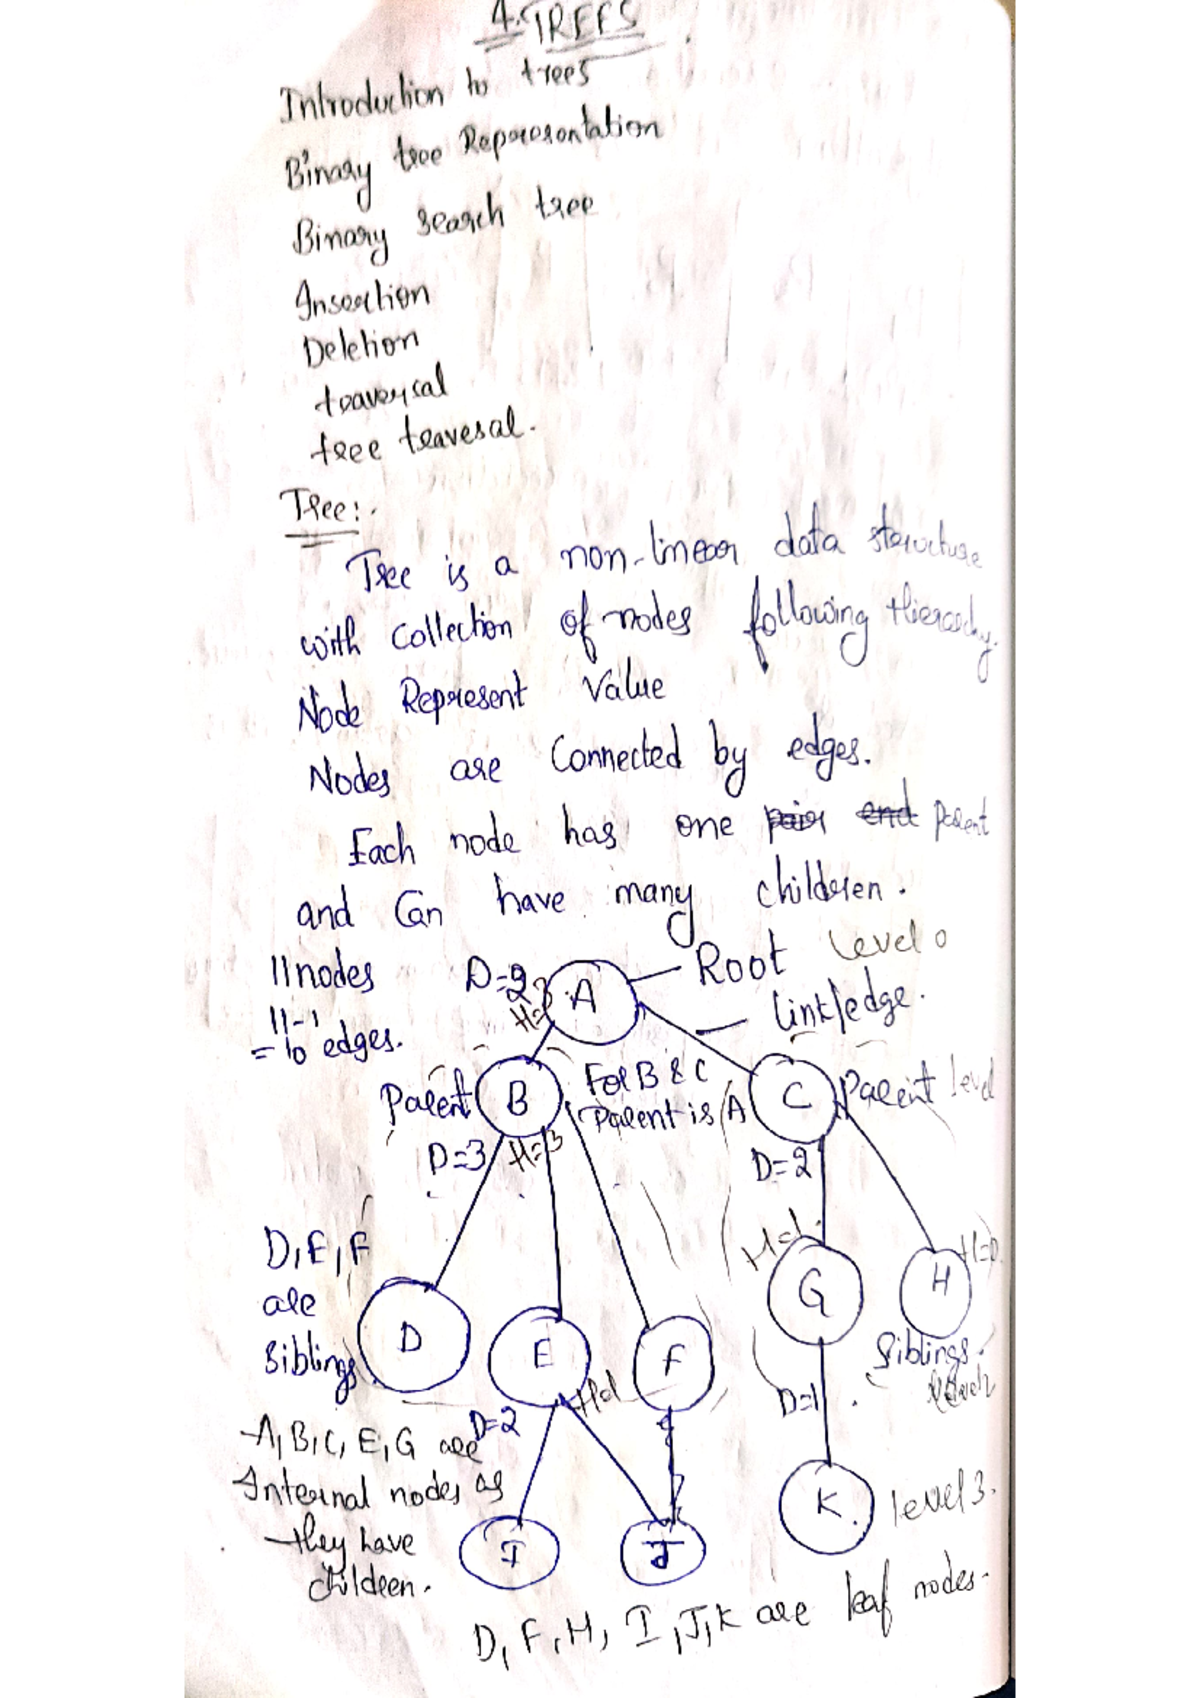 4. TREES
Introduction to trees
Binary tree Representation
Binary search tree
Insertion
Deletion
traversal
tree travesal.
Tree:-
Tree is a non-linear data structure
with collection of nodes following Hierarchy.
Node Represent Value
Nodes are Connected by edges.
Each node has one pair end parent
and Can have many children.
11 nodes
D=2
A
Root
Level 0
11-1
link/edge.
= 10 edges.
Parent
B
For B & C
Parent is A
C
Parent level
D=3
H=3
D=2
H=1
D, E, F
are
Siblings
D
E
F
G
H
H=0
Siblings.
D=2
H=1
D=1
A, B, C, E, G are
Internal nodes as
they have
children.
I
J
K.
level 3.
D, F, H, I, J, K are leaf nodes.